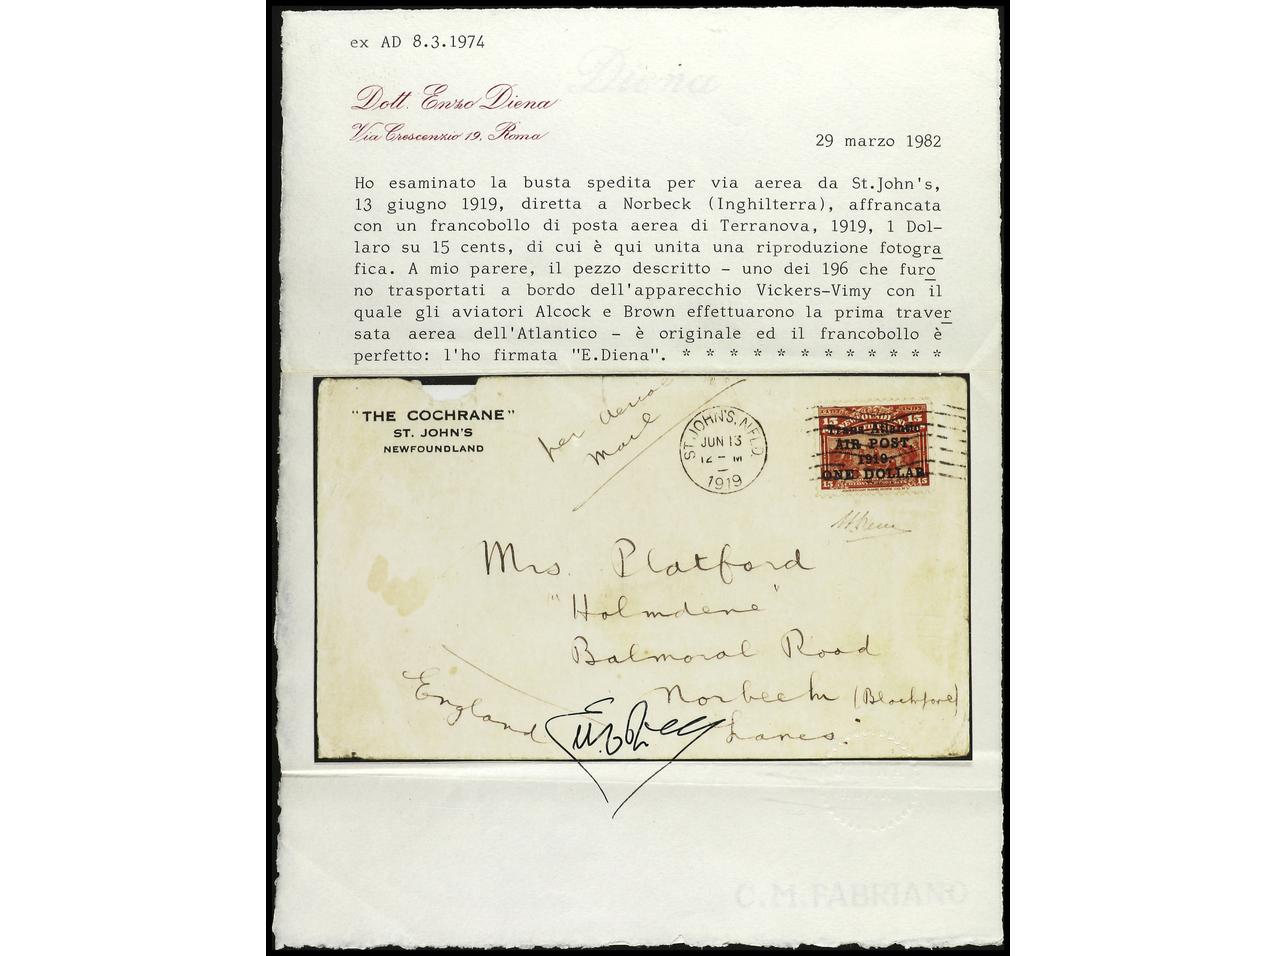 ex AD 8.3.1974
Diena
Dott. Enzo Diena
Via Crescenzio 19, Roma
29 marzo 1982
Ho esaminato la busta spedita per via aerea da St.John's,
13 giugno 1919, diretta a Norbeck (Inghilterra), affrancata
con un francobollo di posta aerea di Terranova, 1919, 1 Dol-
laro su 15 cents, di cui è qui unita una riproduzione fotogra
fica. A mio parere, il pezzo descritto - uno dei 196 che furo
no trasportati a bordo dell'apparecchio Vickers-Vimy con il
quale gli aviatori Alcock e Brown effettuarono la prima traver
sata aerea dell'Atlantico - è originale ed il francobollo è
perfetto: l'ho firmata "E.Diena". * * * * * * * * * * * *
"THE COCHRANE"
ST. JOHN'S
NEWFOUNDLAND
per aerial
mail
ST. JOHN'S, NFLD
JUN 13
12 - M
1919
15 NEWFOUNDLAND 15
Trans-Atlantic
AIR POST,
1919.
ONE DOLLAR.
15 15
Mrs. Platford
"Holmdene"
Balmoral Road
Norbeck (Blackpool)
England Lancs.
C.M.FABRIANO